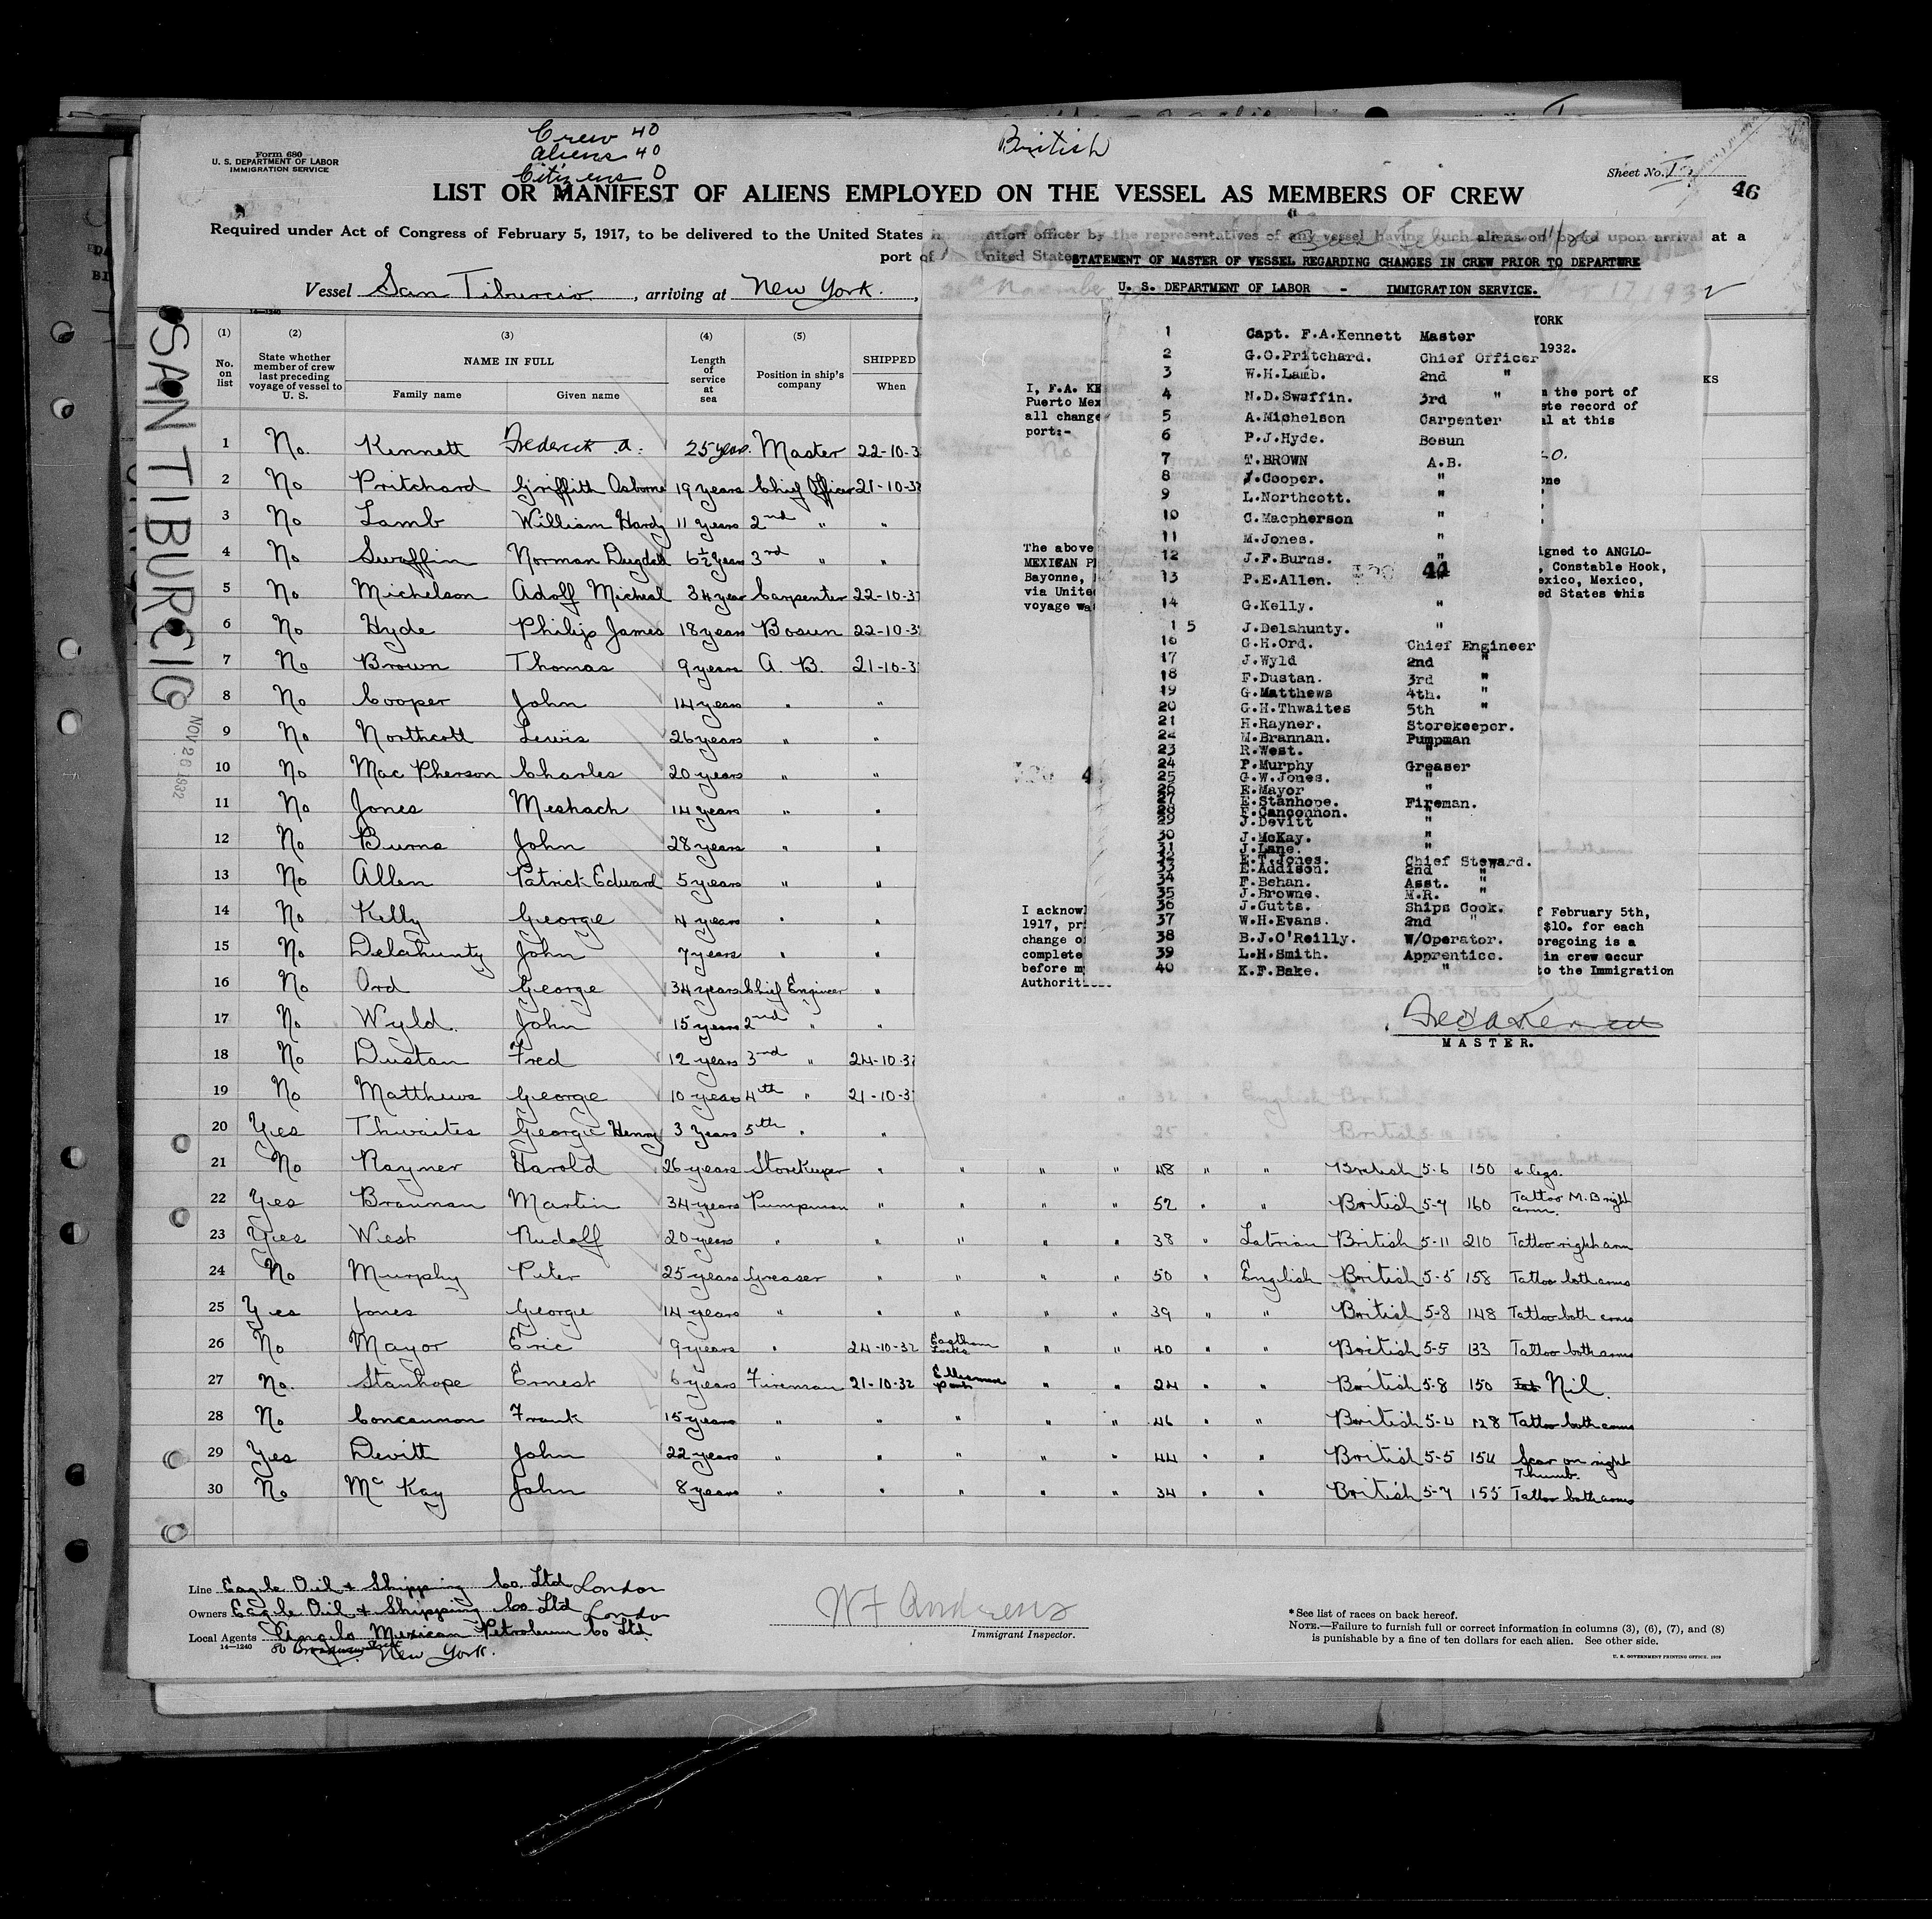 Crew 40
Aliens 40
Citizens 0
British
Form 680
U. S. DEPARTMENT OF LABOR
IMMIGRATION SERVICE
Sheet No. I
46
LIST OR MANIFEST OF ALIENS EMPLOYED ON THE VESSEL AS MEMBERS OF CREW
Required under Act of Congress of February 5, 1917, to be delivered to the United States immigration officer by the representatives of any vessel having such aliens on board upon arrival at a
port of United States
Vessel San Tiburcio, arriving at New York.,
SAN TIBURCIO
NOV 26 1932
14—1240
(1) (2) (3) (4) (5)
No. on list
State whether member of crew last preceding voyage of vessel to U. S.
NAME IN FULL
Family name Given name
Length of service at sea
Position in ship's company
SHIPPED
When
1 No. Kennett Frederick A. 25 years. Master 22-10-3
2 No Pritchard Griffith Osborne 19 years Chief Officer 21-10-32
3 No Lamb William Hardy 11 years 2nd " "
4 No Swaffin Norman Dugdale 6½ years 3rd " "
5 No Michelson Adolf Micheal 34 year Carpenter 22-10-3
6 No Hyde Philip James 18 years Bosun 22-10-3
7 No Brown Thomas 9 years A. B. 21-10-3
8 No Cooper John 14 years " "
9 No Northcott Lewis 26 years " "
10 No Mac Pherson Charles 20 years " "
11 No Jones Meshach 14 years " "
12 No Burns John 28 years " "
13 No Allen Patrick Edward 5 years " "
14 No Kelly George 4 years " "
15 No Delahunty John 7 years " "
16 No Ord George 34 years Chief Engineer "
17 No Wyld. John 15 years 2nd " "
18 No Dustan Fred 12 years 3rd " 24-10-32
19 No Matthews George 10 years 4th " 21-10-3
20 Yes Thwaites George Henry 3 years 5th " "
21 No Rayner Harold 26 years Storekeeper " " " " 48 " " British 5-6 150 & legs.
22 Yes Brannan Martin 34 years Pumpman " " " " 52 " " British 5-7 160 Tattoo M.B right arm.
23 Yes West Rudolf 20 years " " " " " 38 " Latvian British 5-11 210 Tattoo right arm
24 No Murphy Peter 25 years Greaser " " " " 50 " English British 5-5 158 Tattoo both arms
25 Yes Jones George 14 years " " " " " 39 " " British 5-8 148 Tattoo both arms
26 No Mayor Eric 9 years " 24-10-32 Eastham Locks " " 40 " " British 5-5 133 Tattoo both arms
27 No. Stanhope Ernest 6 years Fireman 21-10-32 Ellesmere Port " " 24 " " British 5-8 150 Nil.
28 No Concannon Frank 15 years " " " " " 46 " " British 5-4 128 Tattoo both arms
29 Yes Devitt John 22 years " " " " " 44 " " British 5-5 154 Scar on right Thumb.
30 No Mc Kay John 8 years " " " " " 34 " " British 5-7 155 Tattoo both arms
STATEMENT OF MASTER OF VESSEL REGARDING CHANGES IN CREW PRIOR TO DEPARTURE
U. S. DEPARTMENT OF LABOR - IMMIGRATION SERVICE.
YORK
1932.
KS
I, F.A. KE
Puerto Mex
all change
port:-
m the port of
ete record of
al at this
The above
MEXICAN P
Bayonne,
via Unite
voyage wa
igned to ANGLO-
, Constable Hook,
exico, Mexico,
ed States this
1 Capt. F.A.Kennett Master
2 G.O.Pritchard. Chief Officer
3 W.H.Lamb. 2nd "
4 N.D.Swaffin. 3rd "
5 A.Michelson Carpenter
6 P.J.Hyde. Bosun
7 T.BROWN A.B.
8 J.Cooper. "
9 L.Northcott. "
10 C.Macpherson "
11 M.Jones. "
12 J.F.Burns. "
13 P.E.Allen. 44
14 G.Kelly. "
1 5 J.Delahunty. "
16 G.H.Ord. Chief Engineer
17 J.Wyld 2nd "
18 F.Dustan. 3rd "
19 G.Matthews 4th. "
20 G.H.Thwaites 5th "
21 H.Rayner. Storekeeper.
22 M.Brannan. Pumpman
23 R.West. "
24 P.Murphy Greaser
25 G.W.Jones. "
26 E.Mayor "
27 E.Stanhope. Fireman.
28 F.Canconnon. "
29 J.Devitt "
30 J.McKay. "
31 J.Lane. "
32 E.T.Jones. Chief Steward.
33 E.Addison. 2nd "
34 F.Behan. Asst. "
35 J.Browne. M.R. "
36 J.Cutts. Ships Cook.
37 W.H.Evans. 2nd "
38 B.J.O'Reilly. W/Operator.
39 L.H.Smith. Apprentice.
40 K.F.Bake. "
I acknow
1917, pri
change o
complete
before m
Authorit
f February 5th,
$10. for each
oregoing is a
in crew occur
to the Immigration
MASTER.
Line Eagle Oil & Shipping Co. Ltd London
Owners Eagle Oil & Shipping Co. Ltd London
Local Agents Anglo Mexican Petroleum Co Ltd.
14—1240
New York.
W F Andrews
Immigrant Inspector.
* See list of races on back hereof.
NOTE.—Failure to furnish full or correct information in columns (3), (6), (7), and (8)
is punishable by a fine of ten dollars for each alien. See other side.
U. S. GOVERNMENT PRINTING OFFICE: 1929